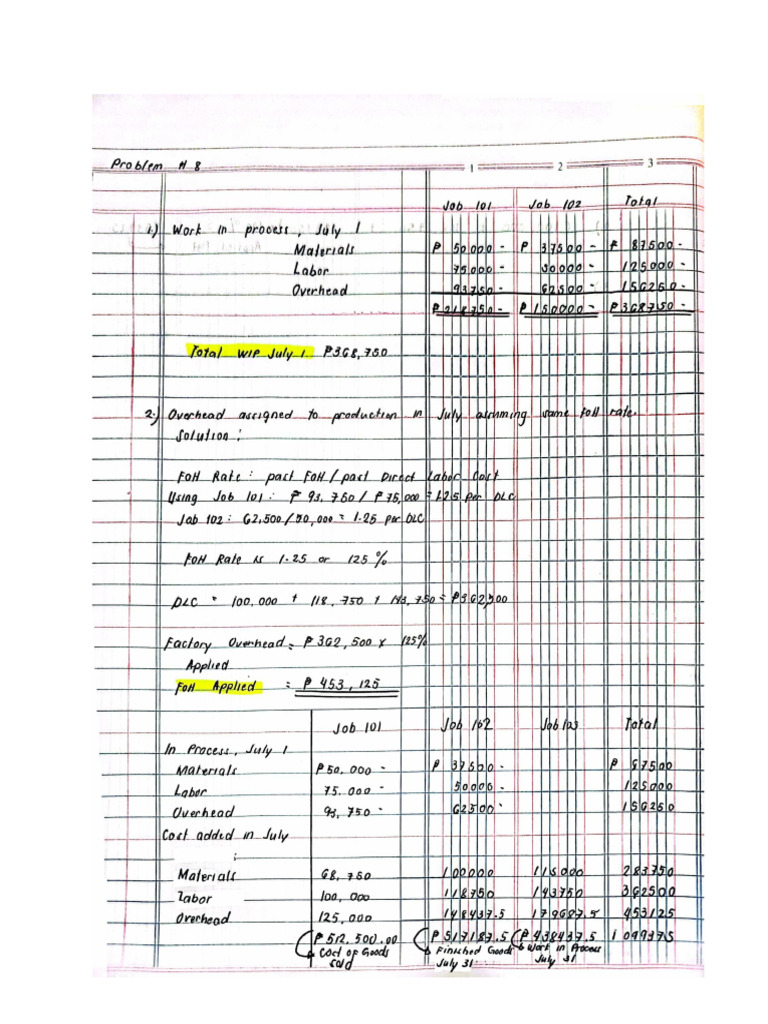 Problem # 8
1 2 3
Job 101 Job 102 Total
1.) Work in process, July 1
Materials ₱ 50000 - ₱ 37500 - ₱ 87500 -
Labor 75000 - 50000 - 125000 -
Overhead 93750 - 62500 - 156250 -
₱ 218750 - ₱ 150000 - ₱ 368750 -
Total WIP July 1 ₱368,750
2.) Overhead assigned to production in July assuming same FOH rate.
Solution:
FOH Rate: past FOH / past Direct Labor Cost
Using Job 101: ₱ 93,750 / ₱75,000 = 1.25 per DLC
Job 102: 62,500/50,000 = 1.25 per DLC
FOH Rate is 1.25 or 125%
DLC = 100,000 + 118,750 + 143,750 = ₱362,500
Factory Overhead = ₱362,500 x 125%
Applied
FOH Applied = ₱ 453,125
Job 101 Job 102 Job 103 Total
In Process, July 1
Materials ₱50,000 - ₱ 37500 - ₱ 87500
Labor 75,000 - 50000 - 125000
Overhead 93,750 - 62500 - 156250
Cost added in July
:
Materials 68,750 100000 115000 283750
Labor 100,000 118750 143750 362500
Overhead 125,000 148437.5 179687.5 453125
₱512,500.00 ₱517187.5 ₱438437.5 1099375
Cost of Goods Sold
Finished Goods July 31
Work in Process July 31